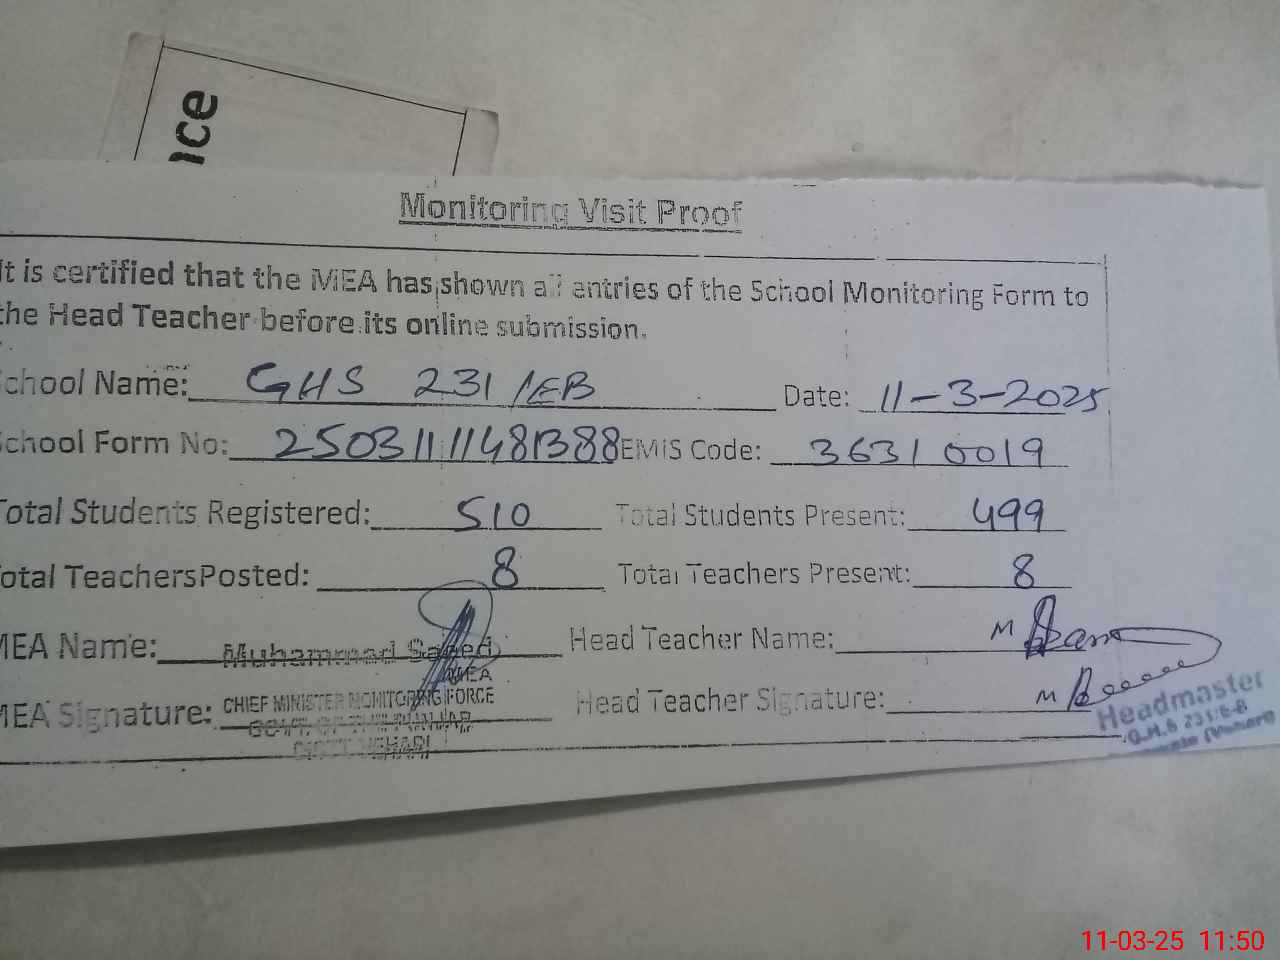 ice
Monitoring Visit Proof
It is certified that the MEA has shown all entries of the School Monitoring Form to
the Head Teacher before its online submission.
School Name: GHS 231/EB Date: 11-3-2025
School Form No: 25031111481388 EMIS Code: 36310019
Total Students Registered: 510 Total Students Present: 499
Total Teachers Posted: 8 Total Teachers Present: 8
MEA Name: Muhammad Saeed Head Teacher Name: M
MEA
MEA Signature: CHIEF MINISTER MONITORING FORCE Head Teacher Signature: M
GOVT. OF THE PUNJAB
DISTT. VEHARI
Headmaster
G.H.S 231/E-B
11-03-25 11:50